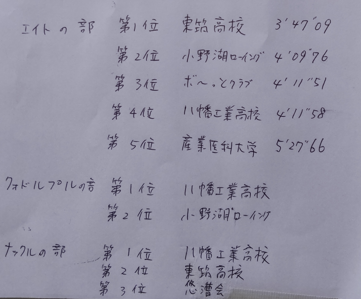 エイトの部 第1位 東筑高校 3'47"09
第2位 小野湖ローイング 4'09"76
第3位 ボ〜っとクラブ 4'11"51
第4位 八幡工業高校 4'11"58
第5位 産業医科大学 5'27"66
クォドルプルの部 第1位 八幡工業高校
第2位 小野湖ローイング
ナックルの部 第1位 八幡工業高校
第2位 東筑高校
第3位 悠漕会